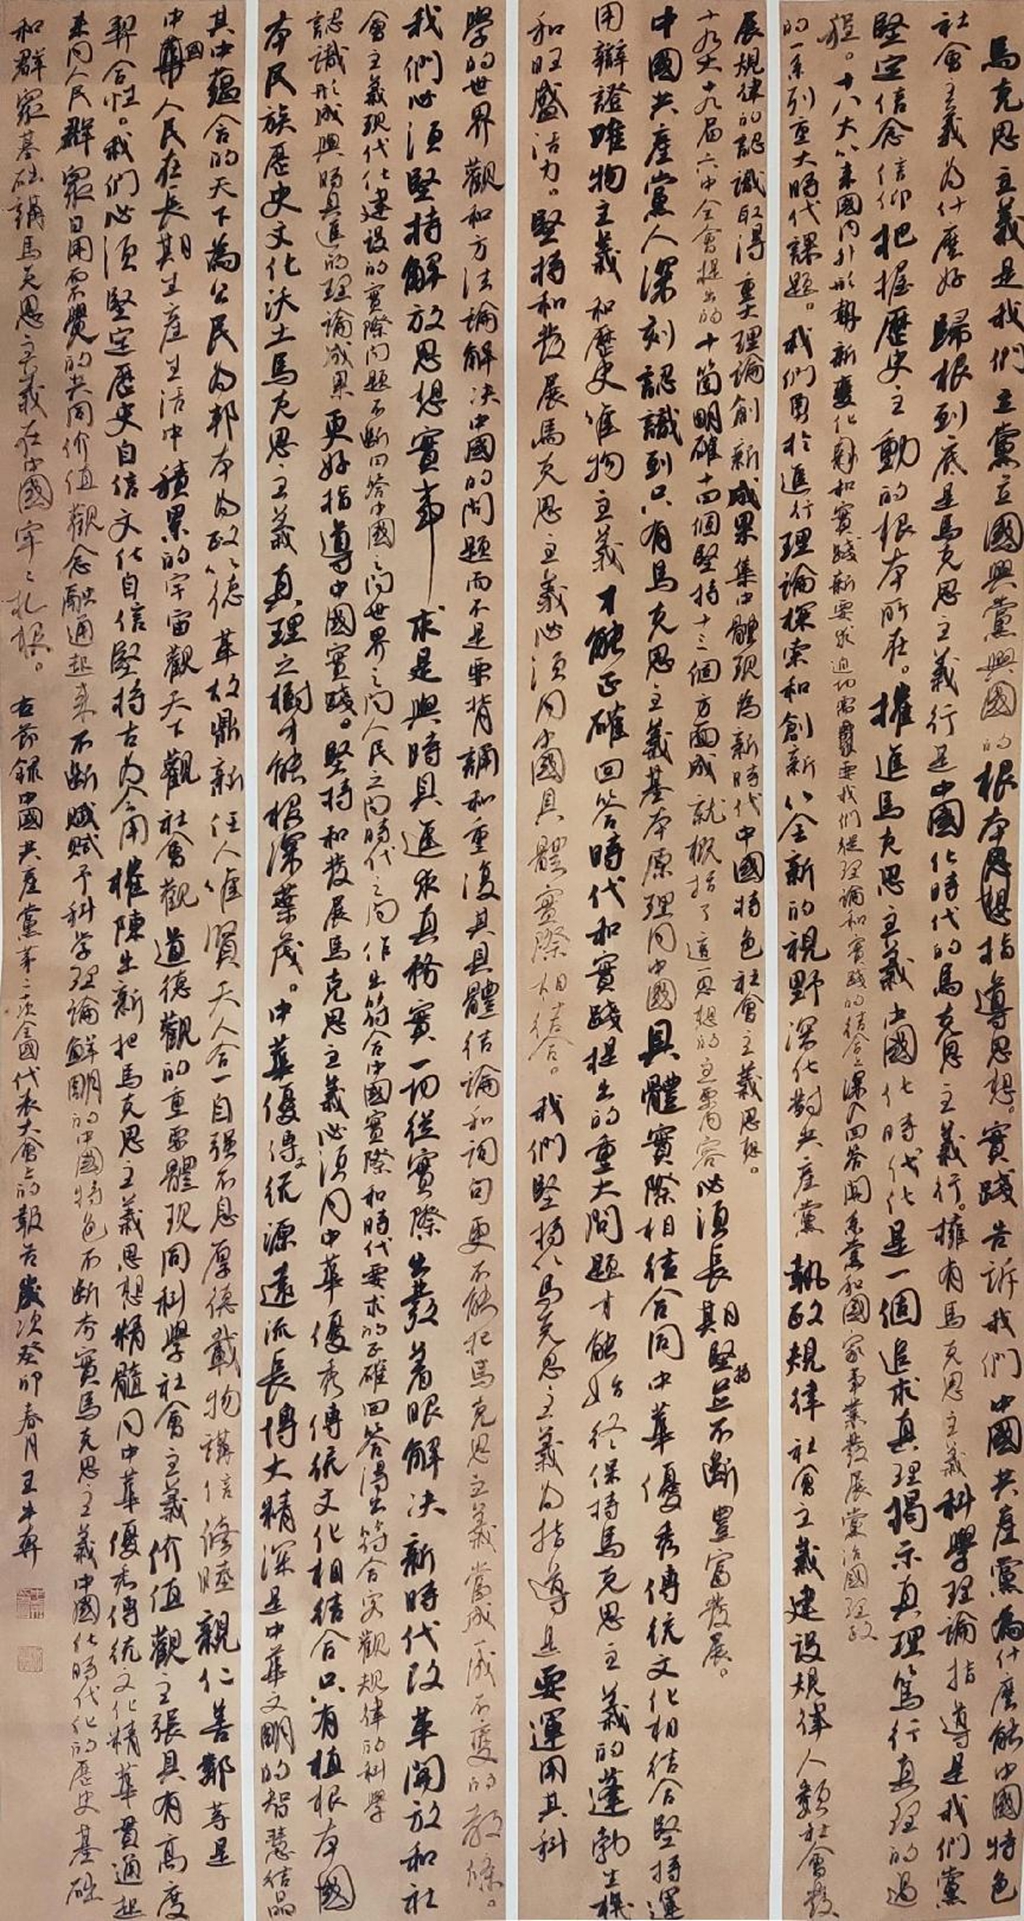 馬克思主義是我們立黨立國興黨興國的根本思想指導思想。實踐告訴我們中國共產黨為什麼能中國特色
社會主義為什麼好歸根到底是馬克思主義行是中國化時代的馬克思主義行。擁有馬克思主義科學理論指導是我們黨
堅定信念信仰把握歷史主動的根本所在。推進馬克思主義中國化時代化是一個追求真理揭示真理篤行真理的過
程。十八大以來國內外形勢新變化和實踐新要求迫切需要我們從理論和實踐的結合上深入回答關系黨和國家事業發展黨治國理政
的一系列重大時代課題。我們勇於進行理論探索和創新以全新的視野深化對共產黨執政規律社會主義建設規律人類社會發
展規律的認識取得重大理論創新成果集中體現為新時代中國特色社會主義思想。
十九大十九届六中全會提出的十個明確十四個堅持十三個方面成就概括了這一思想的主要內容必須長期堅持並不斷豐富發展。
中國共產黨人深刻認識到只有馬克思主義基本原理同中國具體實際相結合同中華優秀傳統文化相結合堅持運
用辯證唯物主義和歷史唯物主義才能正確回答時代和實踐提出的重大問題才能始終保持馬克思主義的蓬勃生機
和旺盛活力。堅持和發展馬克思主義必須同中國具體實際相結合。我們堅持以馬克思主義為指導是要運用其科
學的世界觀和方法論解決中國的問題而不是要背誦和重復其具體結論和詞句更不能把馬克思主義當成一成不變的教條。
我們必須堅持解放思想實事求是與時具進求真務實一切從實際出發着眼解決新時代改革開放和社
會主義現代化建設的實際問題不斷回答中國之問世界之問人民之問時代之問作出符合中國實際和時代要求的正確回答得出符合客觀規律的科學
認識形成與時具進的理論成果更好指導中國實踐。堅持和發展馬克思主義必須同中華優秀傳統文化相結合只有植根本國
本民族歷史文化沃土馬克思主義真理之樹才能根深葉茂。中華優傳統源遠流長博大精深是中華文明的智慧結晶
其中蘊含的天下為公民為邦本為政以德革故鼎新任人唯賢天人合一自強不息厚德載物講信修睦親仁善鄰等是
中國人民在長期生產生活中積累的宇宙觀天下觀社會觀道德觀的重要體現同科學社會主義價值觀主張具有高度
契合性。我們必須堅定歷史自信文化自信堅持古為今用推陳出新把馬克思主義思想精髓同中華優秀傳統文化精華貫通起
來同人民群眾日用而不覺的共同价值觀念融通起來不斷賦予科學理論鮮明的中國特色不斷夯實馬克思主義中國化時代化的歷史基礎
和群眾基础讓馬克思主義在中國牢牢扎根。
右節錄中國共產黨第二次全國代表大會上的報告歲次癸卯春月王